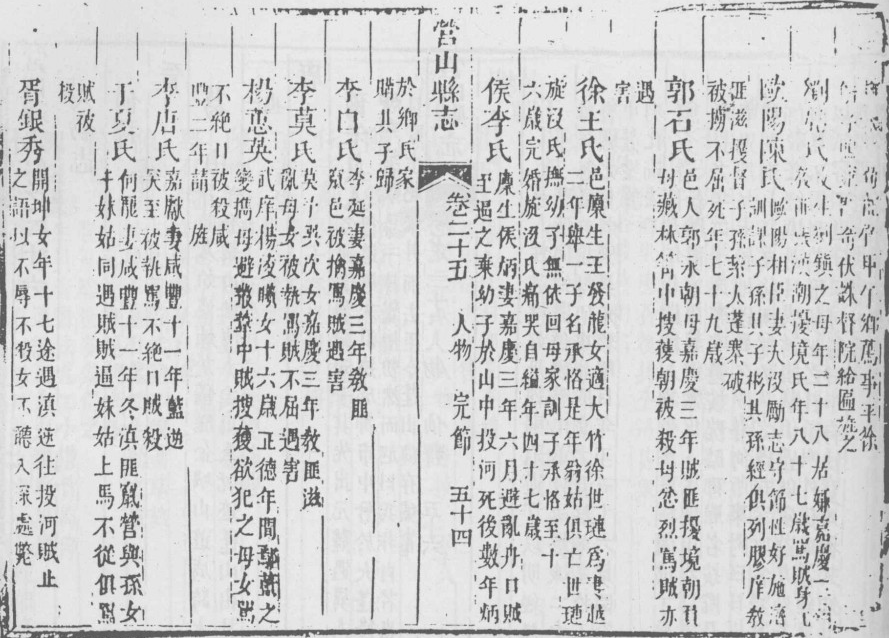 伏誅督院給匾旌之
之母年二十八居孀嘉慶
擾境氏年八十七歲罵賊身亡
歐陽陳氏歐陽相臣妻夫沒勵志守節性好施濟
訓課子孫其子彬其孫經俱列膠庠教
匪滋擾督子孫築太蓬寨破
被擄不屈死年七十九歲
郭石氏邑人郭永朝母嘉慶三年賊匪擾境朝負
母藏林箐中搜獲朝被殺母忿烈罵賊亦
遇
害
徐王氏邑廩生王發龍女適大竹徐世璉爲妻越
二年舉一子名承恪是年翁姑俱亡世璉
旋沒氏撫幼子無依回母家訓子承恪十
六歲完婚旋沒氏痛哭自縊年四十七歲
侯李氏廩生侯炳妻嘉慶三年六月避亂舟口賊
至遇之棄幼子於山中投河死後數年炳
營山縣志
卷二十五 人物 完節 五十四
於鄉氏家
購其子歸
李白氏李延妻嘉慶三年教匪
竄邑被擒罵賊遇害
李莫氏莫子異次女嘉慶三年教匪滋
亂母女被執罵賊不屈遇害
楊憲英武庠楊凌曦女十六歲正德年間鄢藍之
變攜母避叢箐中賊搜獲欲犯之母女罵
不絕口被殺咸
豐二年請 旌
李唐氏嘉獻妻咸豐十一年藍逆
突至被執罵不絕口賊殺
于夏氏何龍妻咸豐十一年冬滇匪竄營與孫女
于妹姑同遇賊賊逼妹姑上馬不從俱罵
賊被
殺
胥銀秀開坤女年十七途遇滇逆往投河賊止
之語以不辱不役女不聽入深處斃